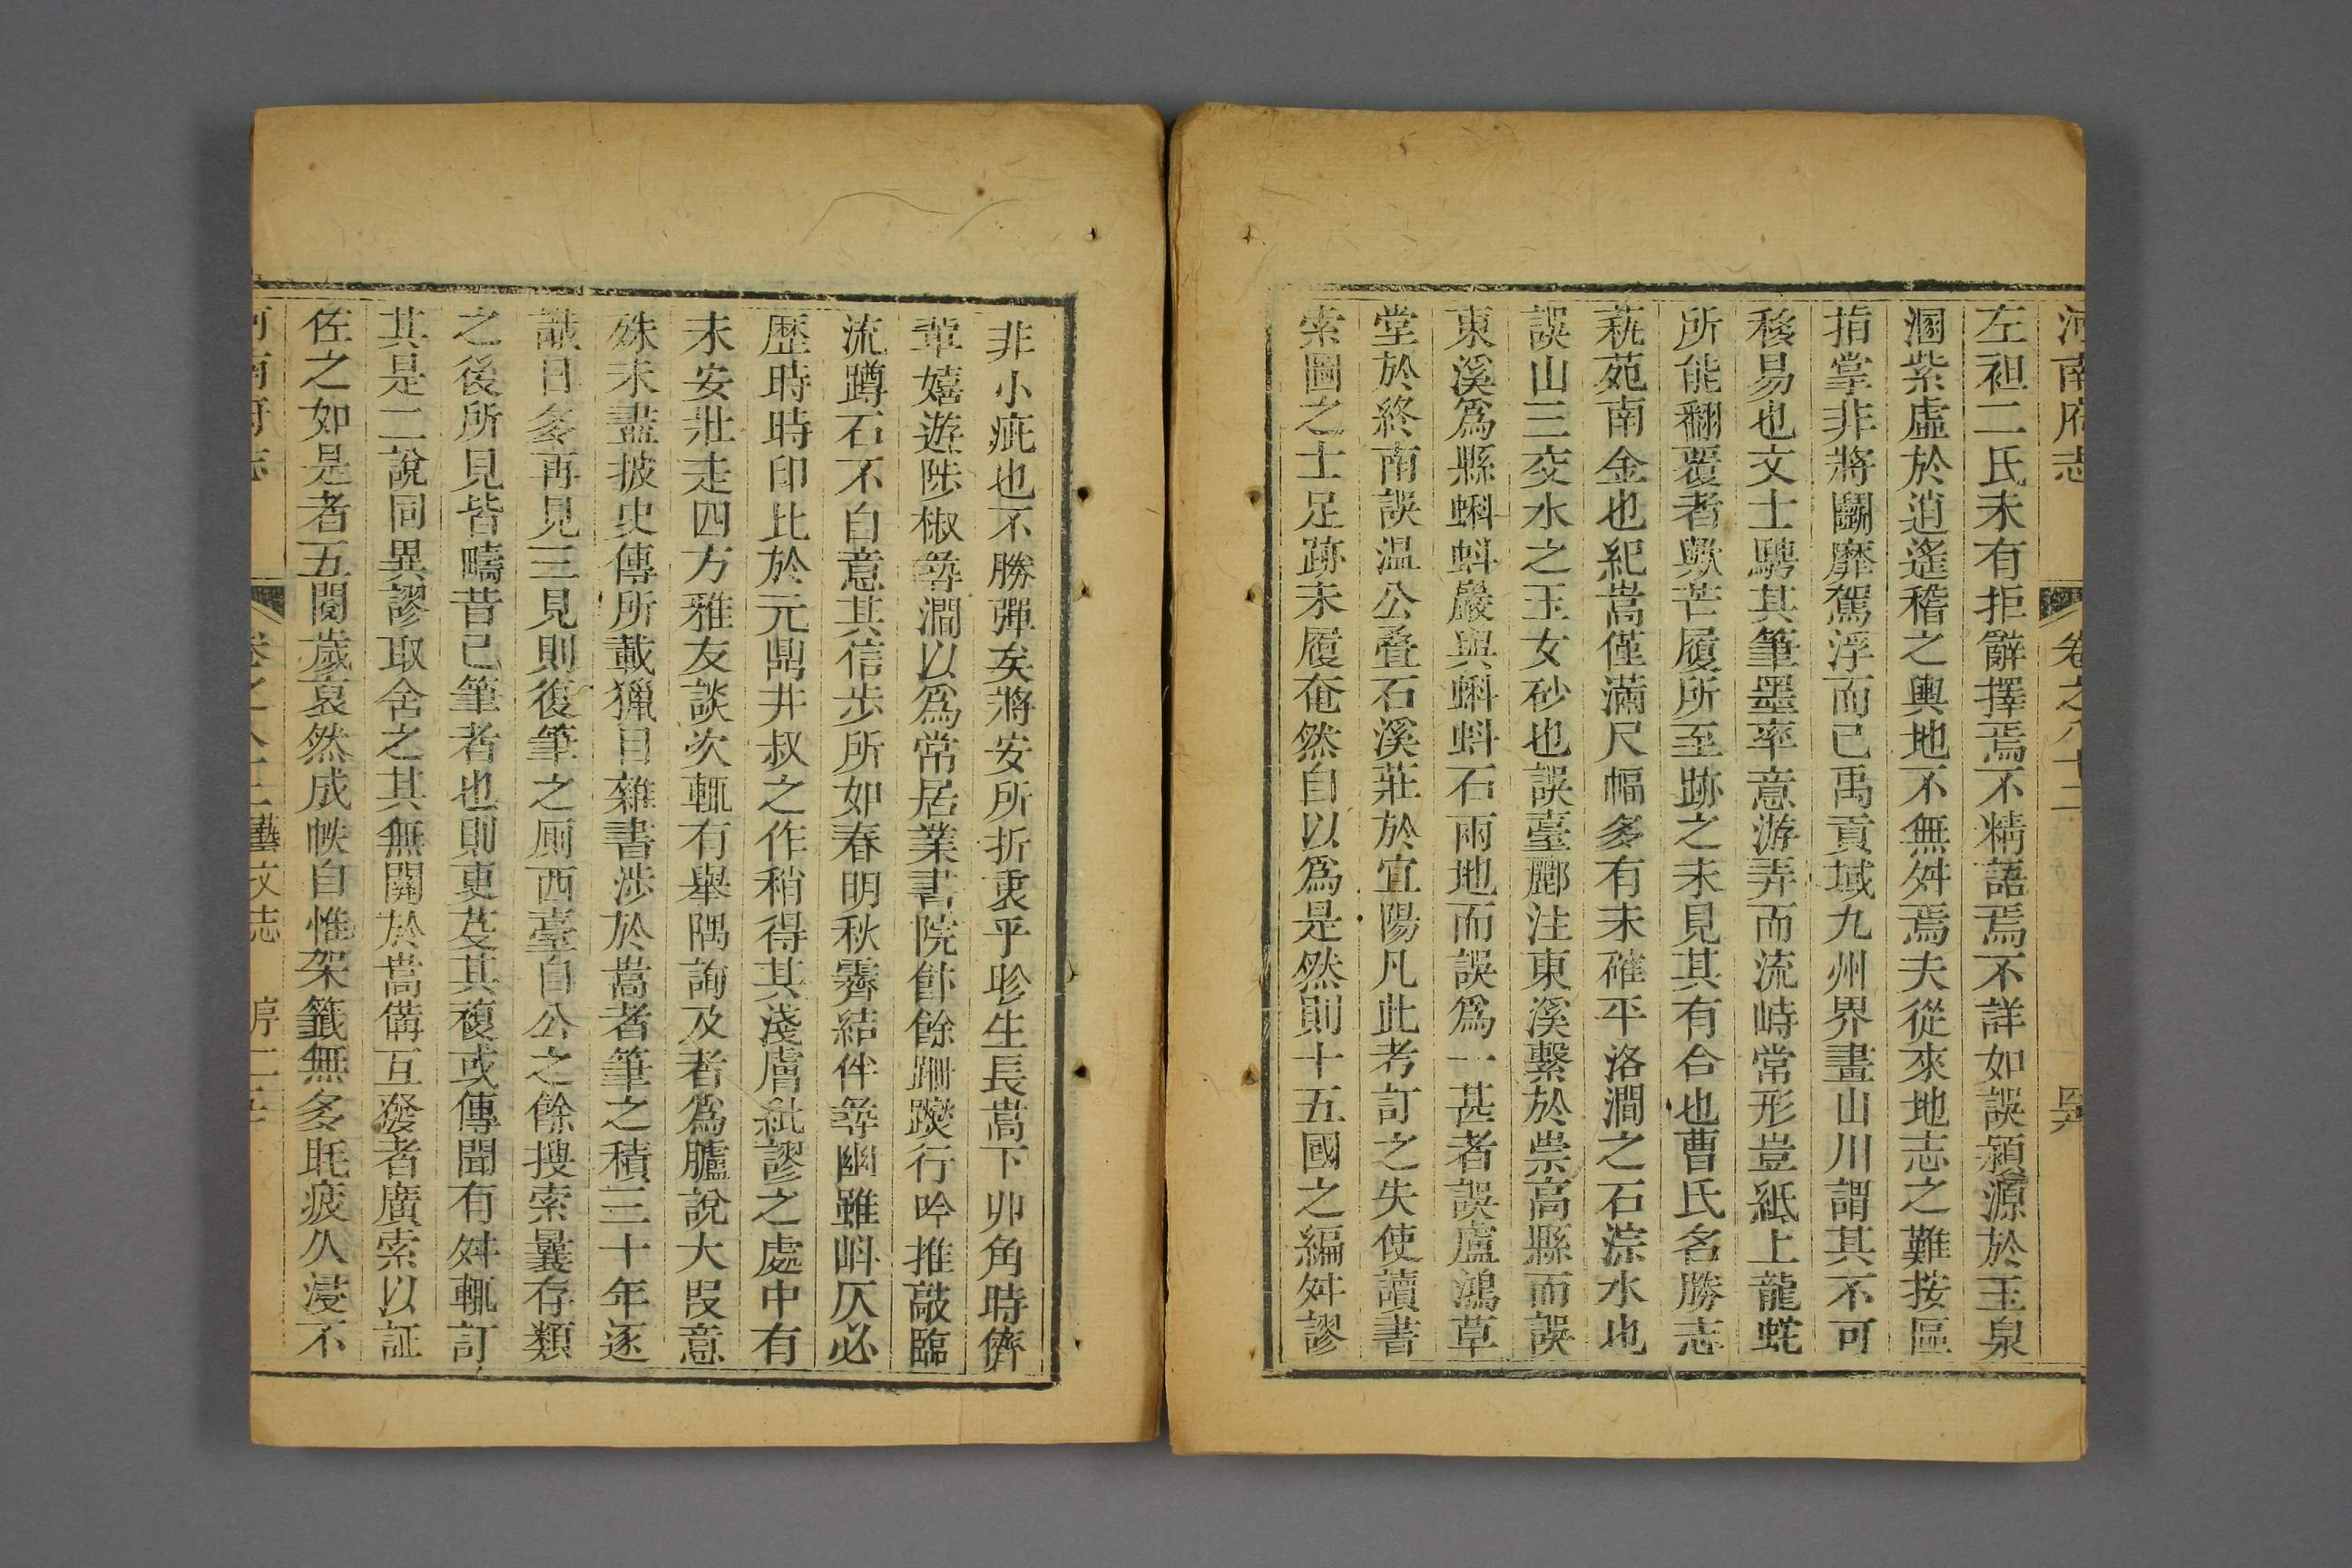 河南府志 卷之八十二
左袒二氏未有拒辭擇焉不精語焉不詳如誤潁源於玉泉
溷紫虛於逍遙稽之輿地不無舛焉夫從來地志之難按區
指掌非將鬭靡駕浮而已禹貢域九州界畫山川謂其不可
移易也文士騁其筆墨率意游弄而流峙常形豈紙上龍蛇
所能翻覆者歟芒履所至跡之未見其有合也曹氏名勝志
蓺苑南金也紀嵩僅滿尺幅多有未確平洛澗之石淙水也
誤山三交水之玉女砂也誤臺酈注東溪繫於崇高縣而誤
東溪爲縣蝌蚪巖與蝌蚪石兩地而誤爲一甚者誤盧鴻草
堂於終南誤温公叠石溪莊於宜陽凡此考訂之失使讀書
索圖之士足跡未履奄然自以爲是然則十五國之編舛謬
非小疵也不勝彈矣將安所折衷乎昣生長嵩下丱角時儕
輩嬉遊陟椒尋澗以爲常居業書院飰餘跚踥行吟推敲臨
流蹲石不自意其信步所如春明秋霽結伴尋幽雖㟁仄必
歷時時印比於元鼎井叔之作稍得其淺膚紕謬之處中有
未安壯走四方雅友談次輒有舉隅詢及者爲臚說大叚意
殊未盡披史傳所載獵目雜書涉於嵩者筆之積三十年逐
識日多再見三見則復筆之厠西臺自公之餘搜索曩存類
之後所見皆疇昔已筆者也則更芟其複或傳聞有舛輒訂
其是二說同異謬取舍之其無關於嵩偹互發者廣索以証
佐之如是者五閱歲裒然成帙自惟架籤無多毦疲久浸不
河南府志 卷之八十二藝文志 序二